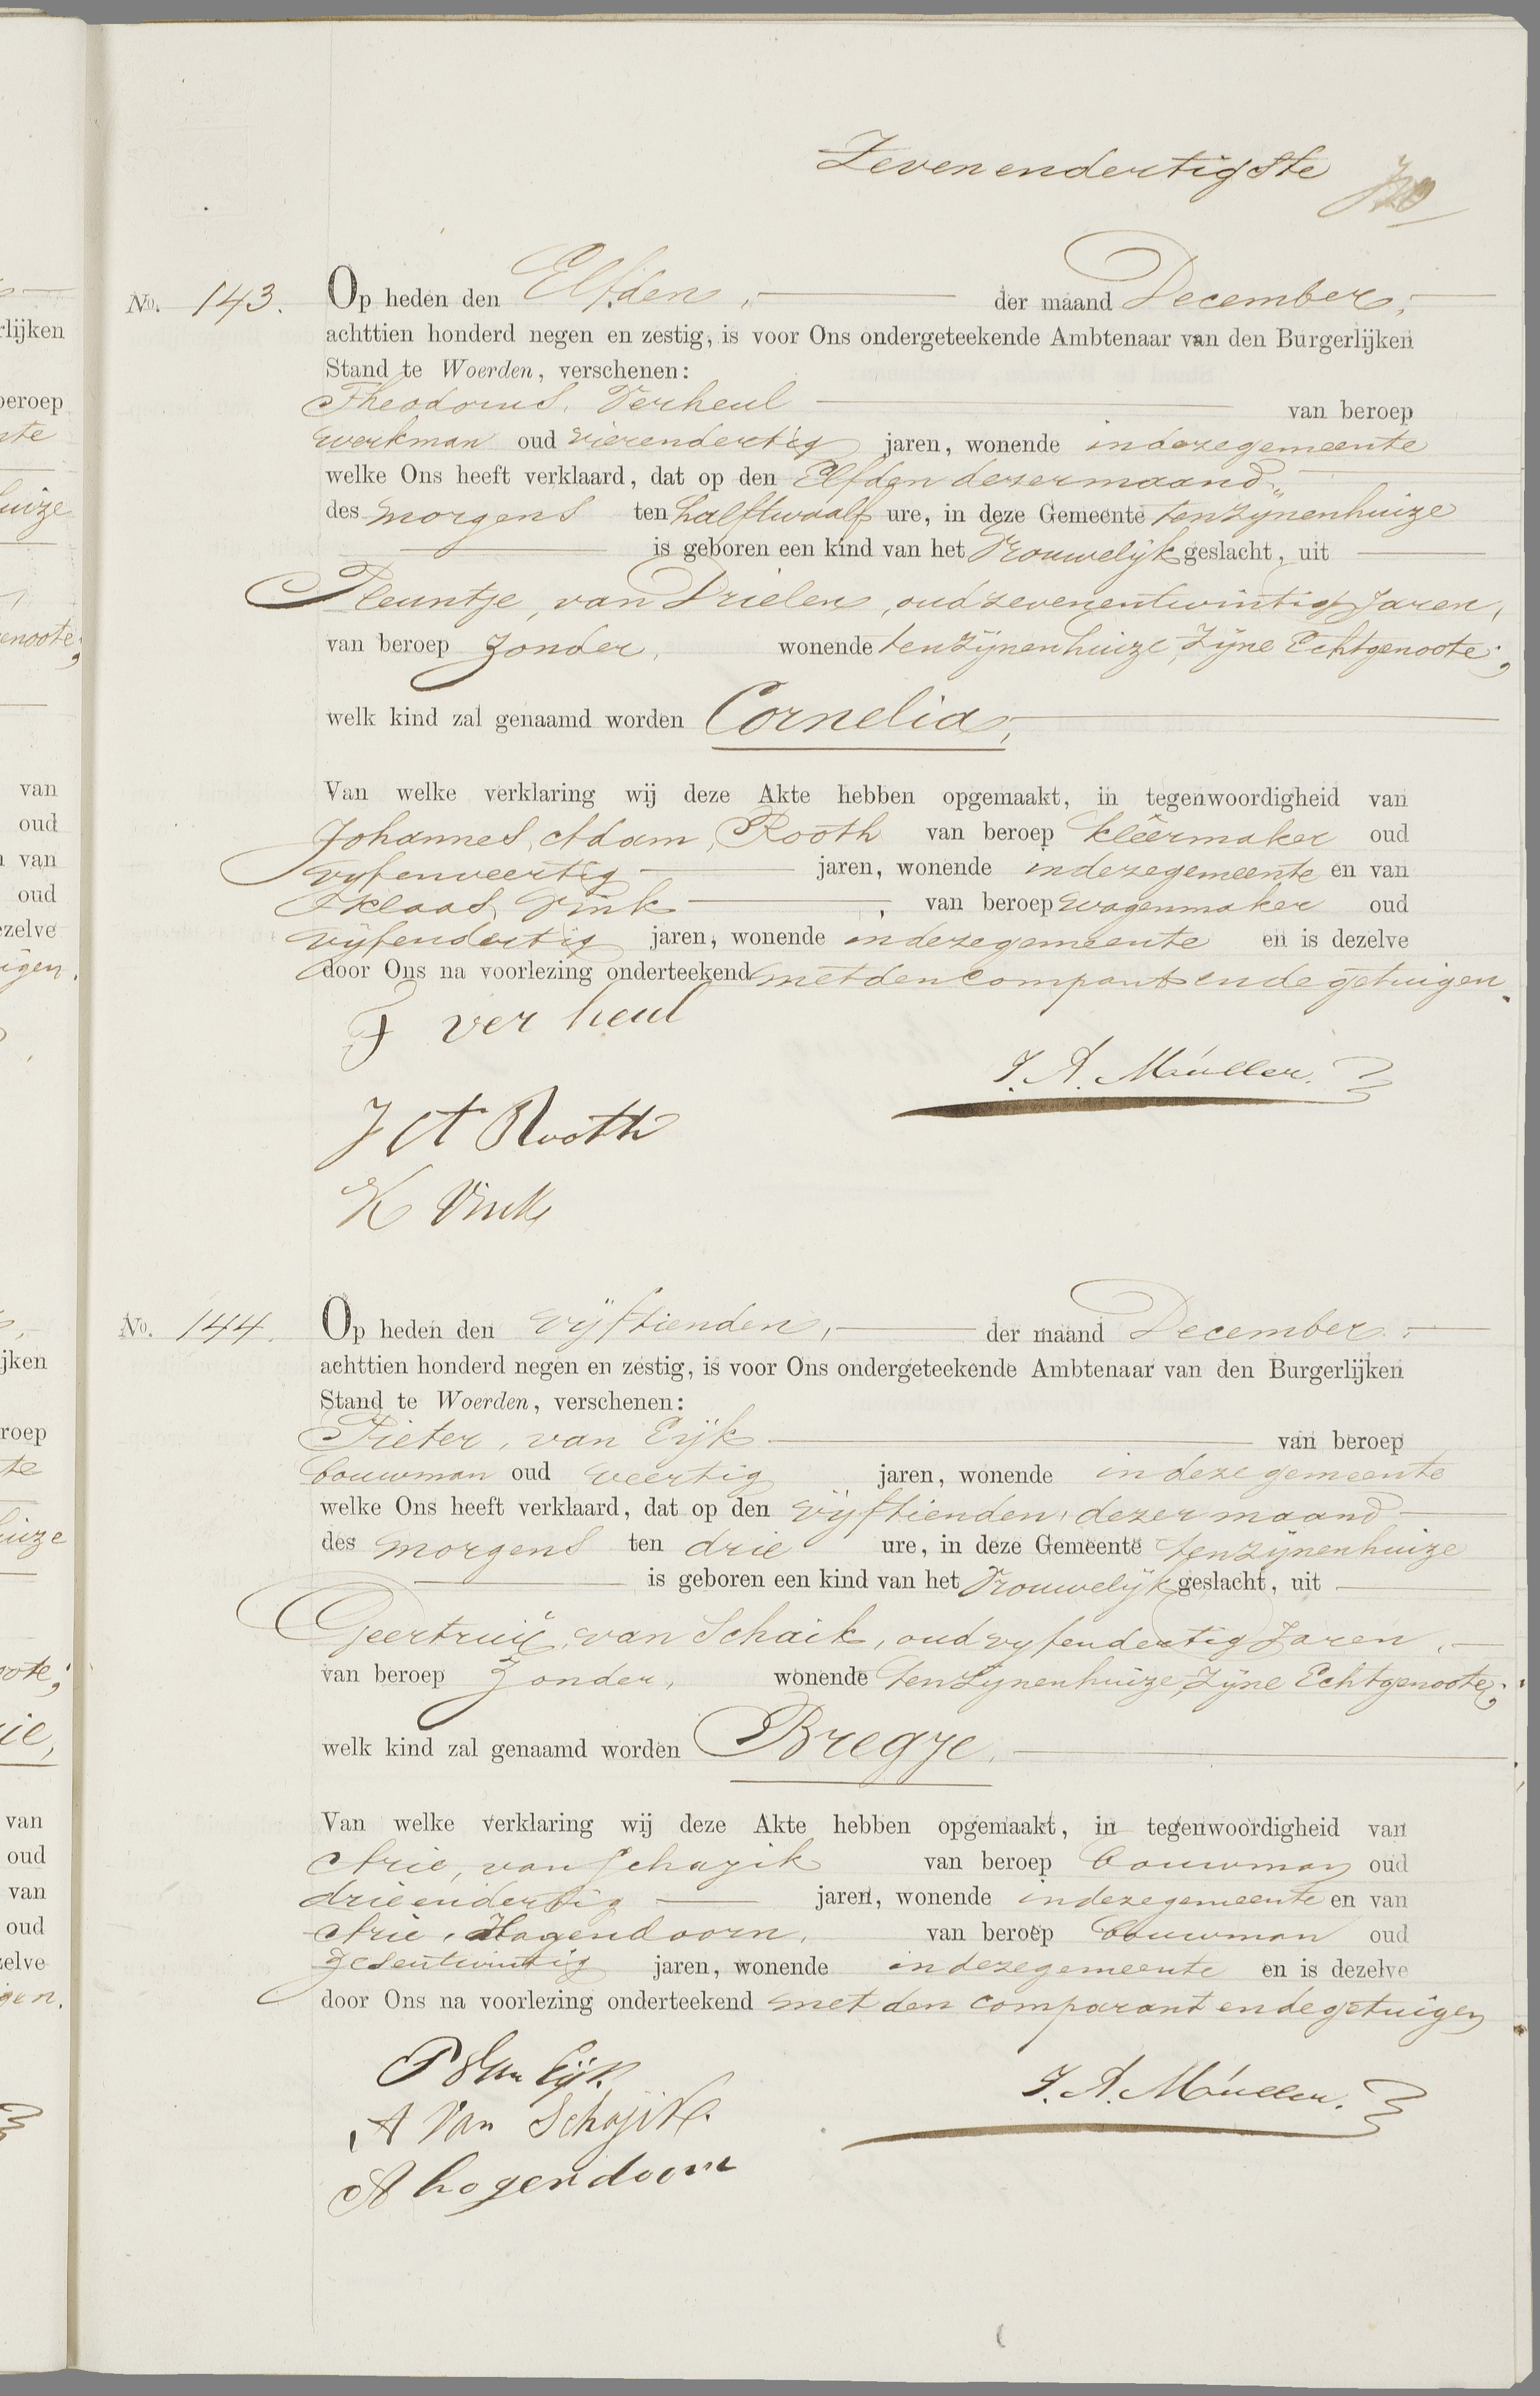 Zevenendertigste
No. 143. Op heden den Elfden, der maand December,
achttien honderd negen en zestig, is voor Ons ondergeteekende Ambtenaar van den Burgerlijken
Stand te Woerden, verschenen:
Theodorus, Verheul van beroep
werkman oud vierendertig jaren, wonende indezegemeente
welke Ons heeft verklaard, dat op den Elfden dezermaand,
des morgens ten halftwaalf ure, in deze Gemeente tenzijnenhuize
is geboren een kind van het Vrouwelijk geslacht, uit
Pleuntje, van Drielen, oud zevenentwintig Jaren,
van beroep Zonder, wonende tenzijnenhuize, Zijne Echtgenoote;
welk kind zal genaamd worden Cornelia,
Van welke verklaring wij deze Akte hebben opgemaakt, in tegenwoordigheid van
Johannes, Adam, Rooth van beroep kleêrmaker oud
vyfenveertig jaren, wonende indezegemeente en van
Klaas, Vink, van beroep wagenmaker oud
vijfendertig jaren, wonende indezegemeente en is dezelve
door Ons na voorlezing onderteekend met den compant en de getuigen.
T ver heul
J. A. Müller.
J A Rooth
K Vink
No. 144. Op heden den Vijftienden, der maand December,
achttien honderd negen en zestig, is voor Ons ondergeteekende Ambtenaar van den Burgerlijken
Stand te Woerden, verschenen:
Pieter, van Eijk van beroep
bouwman oud veertig jaren, wonende in deze gemeente
welke Ons heeft verklaard, dat op den vijftienden, dezer maand
des morgens ten drie ure, in deze Gemeente tenzijnenhuize
is geboren een kind van het Vrouwelijk geslacht, uit
Geertrui, van Schaik, oud vyfendertig Jaren,
van beroep Zonder, wonende tenzijnenhuize, Zijne Echtgenoote;
welk kind zal genaamd worden Bregje,
Van welke verklaring wij deze Akte hebben opgemaakt, in tegenwoordigheid van
Arie, van Schayik van beroep bouwman oud
drieendertig jaren, wonende indezegemeente en van
Arie, Hogendoorn, van beroep bouwman oud
zesentwintig jaren, wonende indezegemeente en is dezelve
door Ons na voorlezing onderteekend met den comparant en de getuigen
P Van Eijk.
J. A. Müller.
A Van Schajik.
A hogendoorn